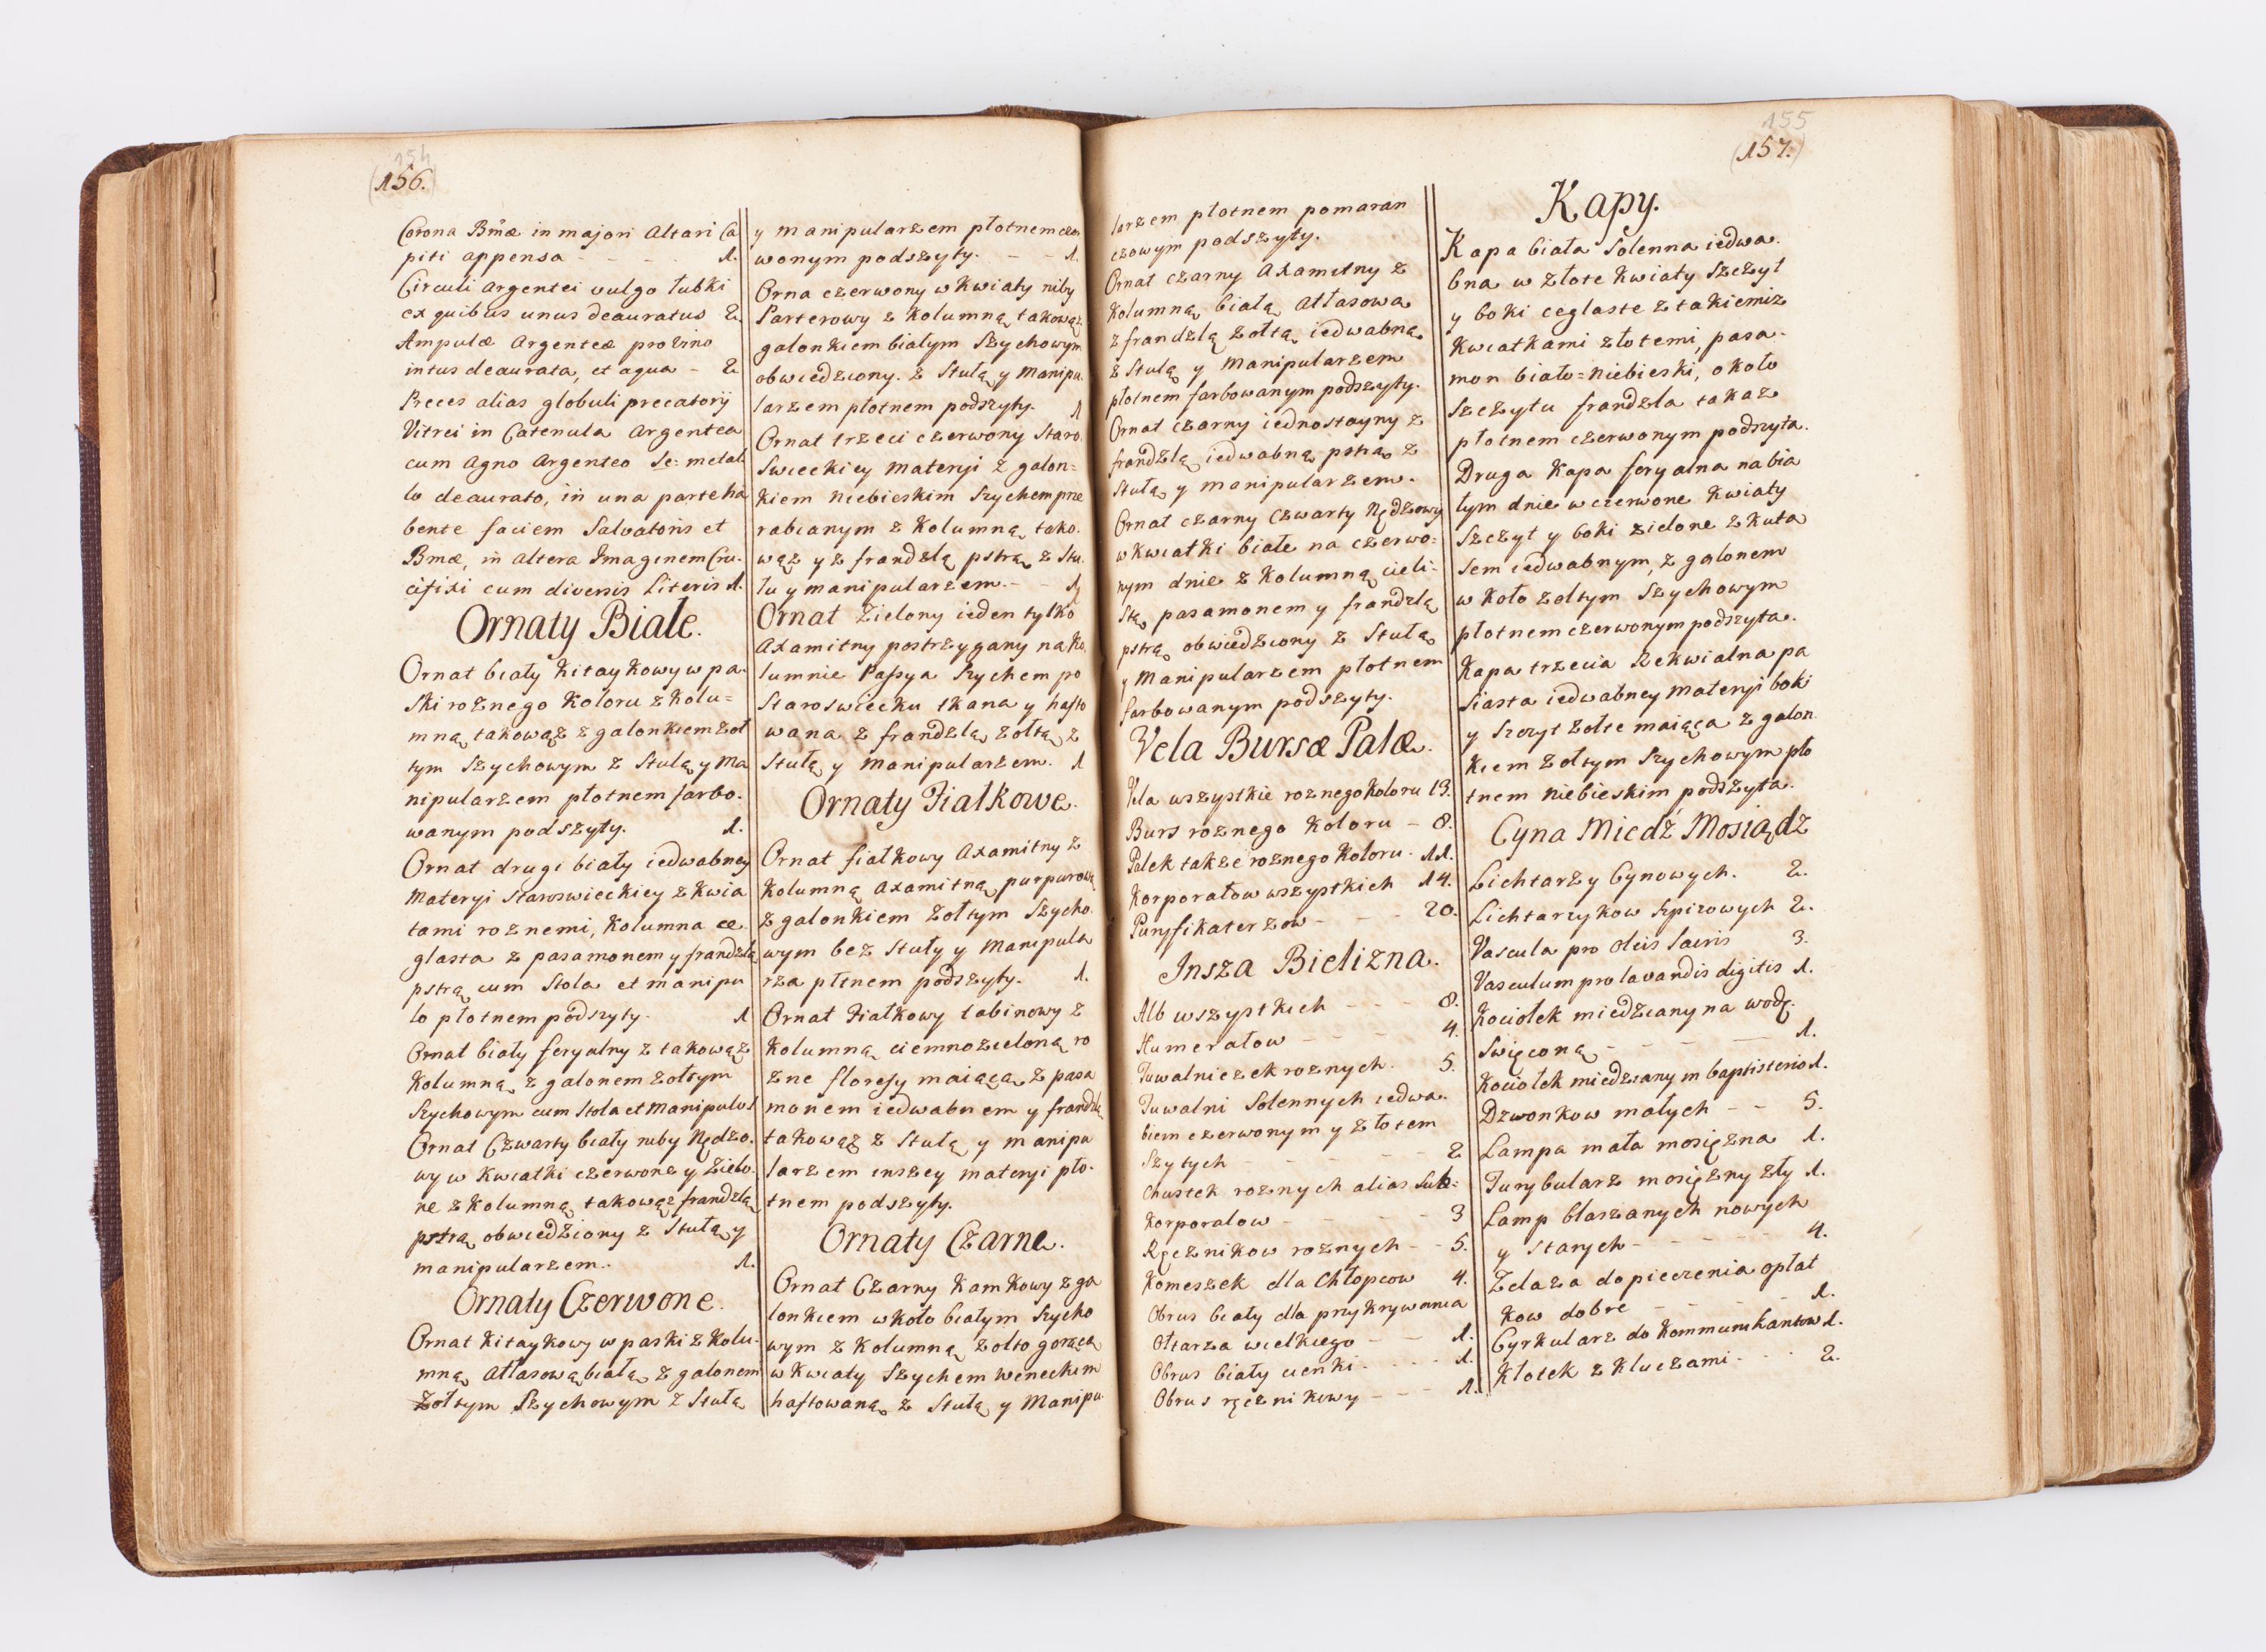 154
(156.)
Corona Bmæ in majori Altari Ca
piti appensa - - - - 1.
Circuli Argentei vulgo Łubki
ex quibus unus deauratus 2.
Ampulæ Argenteæ pro vino
intus deaurata, et aqua - 2.
Preces alias globuli precatorÿ
Vitrei in Catenula Argentea
cum Agno Argenteo Se: metal
lo deaurato, in una parte ha
bente faciem Salvatoris et
Bmæ, in altera Imaginem Cru-
cifixi cum diversis Literis 1.
Ornaty Białe.
Ornat biały Kitaykowy w pa-
ski roznego Koloru z Kolu=
mną takowąz z galonkiem żoł
tym Szychowym z Stułą y Ma
nipularzem płotnem farbo-
wanym podszyty. 1.
Ornat drugi biały iedwabney
Materyi staroswieckiey z kwia
tami roznemi, Kolumna ce
glasta z pasamonem y frandzlą
pstrą cum Stola et manipu
lo płotnem podszyty. 1
Ornat biały feryalny z takowąz
Kolumną z galonem żołtym
Szychowym cum Stola et Manipulo 1
Ornat Czwarty biały niby Nędzo-
wy w Kwiatki czerwone y Zielo-
ne z Kolumną takowąz frandzlą
pstrą obwiedziony z Stułą y
manipularzem. 1.
Ornaty Czerwone.
Ornat kitaykowy w paski z Kolu-
mną Atłasową białą z galonem
Żołtym Szychowym z Stułą
y manipularzem płotnem czer
wonym podszyty. - - 1.
Orna czerwony w Kwiaty niby
Parterowy z Kolumną takowąz
galonkiem białym Szychowym
obwiedziony. z Stułą y Manipu-
larzem płotnem podszyty. 1
Ornat trzeci czerwony Staro-
Swieckiey Materyi z galon=
Kiem Niebieskim Szychem prze
rabianym z Kolumną tako-
wąz y z frandzlą pstrą z Stu-
łu y manipularzem. - - 1
Ornat Zielony ieden tylko
Axamitny postrzygany na Ko-
lumnie Passya Szychem po
Staroswiecku tkana y hafto
wana z frandzlą żołtą z
Stułą y Manipularzem. 1
Ornaty Fiałkowe.
Ornat fiałkowy Axamitny z
Kolumną Axamitną purpurową
z galonkiem Żołtym Szycho-
wym bez Stuły y Manipula
rza płtnem podszyty. 1.
Ornat Fiałkowy tabinowy z
Kolumną ciemnozieloną ro
zne floresy maiącą z pasa
monem iedwabnem y frandzlą
takowąz z Stułą y manipu
larzem inszey materyi pło-
tnem podszyty.
Ornaty Czarne.
Ornat Czarny Kamkowy z ga
lonkiem w koło białym Szycho
wym z Kolumną zołto gorącą
w Kwiaty Szychem Weneckim
haftowaną z Stułą y Manipu
155
(157.)
larzem płotnem pomaran
czowym podszyty.
Ornat czarny Axamitny z
Kolumną białą Atłasowa
z frandzlą żołtą iedwabną
z Stułą y Manipularzem
płotnem farbowanym podszyty.
Ornat czarny iednostayny z
frandzlą iedwabną pstrą z
Stułą y manipularzem.
Ornat czarny Czwarty Nędzowy
w Kwiatki białe na czerwo=
nym dnie z Kolumną cieli-
stą pasamonem y frandzlą
pstrą obwiedziony z Stułą
y Manipularzem płotnem
farbowanym podszyty.
Vela Bursæ Palæ.
Vela wszystkie roznego Koloru 13.
Burs roznego Koloru - 8.
Palek takze roznego Koloru. 11.
Korporałow wszystkich 14.
Puryfikaterzow - - - 20.
Insza Bielizna.
Alb wszystkich - - - 8.
Humerałow - - - 4.
Tuwalniczek roznych. 5.
Tuwalni Solennych iedwa-
biem czerwonym y złotem
Szytych - - - - - 2
Chustek roznych alias Sub=
Korporalow - - - - 3
Ręcznikow roznych - - 5.
Komeszek dla Chłopcow 4.
Obrus biały dla przykrywania
Ołtarza wielkiego - - 1.
Obrus biały cienki. - - - 1.
Obrus ręcznikowy - - - 1.
Kapy.
Kapa biała Solenna iedwa-
bna w złote Kwiaty Szczyt
y boki ceglaste z takiemiz
Kwiatkami złotemi, pasa-
mon biało=Niebieski, około
Szczytu frandzla takaz
płotnem czerwonym podszyta.
Druga Kapa feryalna na bia
łym dnie w czerwone Kwiaty
Szczyt y boki zielone z Kuta
sem iedwabnym, z galonem
w koło zołtym Szychowym
płotnem czerwonym podszyta.
Kapa trzecia Rekwialna pa
siasta iedwabney Materyi boki
y Szczyt żołte maiąca z galon
Kiem Zołtym Szychowym pło
tnem Niebieskim podszyta.
Cyna Miedź Mosiądz
Lichtarzy Cynowych. 2.
Lichtarzykow Spizowych 2.
Vascula pro oleis Sacris 3.
Vasculum pro lavandis digitis 1.
Kociołek miedziany na wodę
Swięconą - - - - 1.
Kociołek miedziany in baptisterio 1.
Dzwonkow małych - - 5.
Lampa mała mosięzna 1.
Turybularz mosięzny zły 1.
Lamp blaszanych nowych
y starych - - - - - 4.
Zelaza do pieczenia opłat
kow dobre - - - - 1.
Cyrkularz do Kommunikantow 1.
Kłotek z Kluczami. - - - 2.